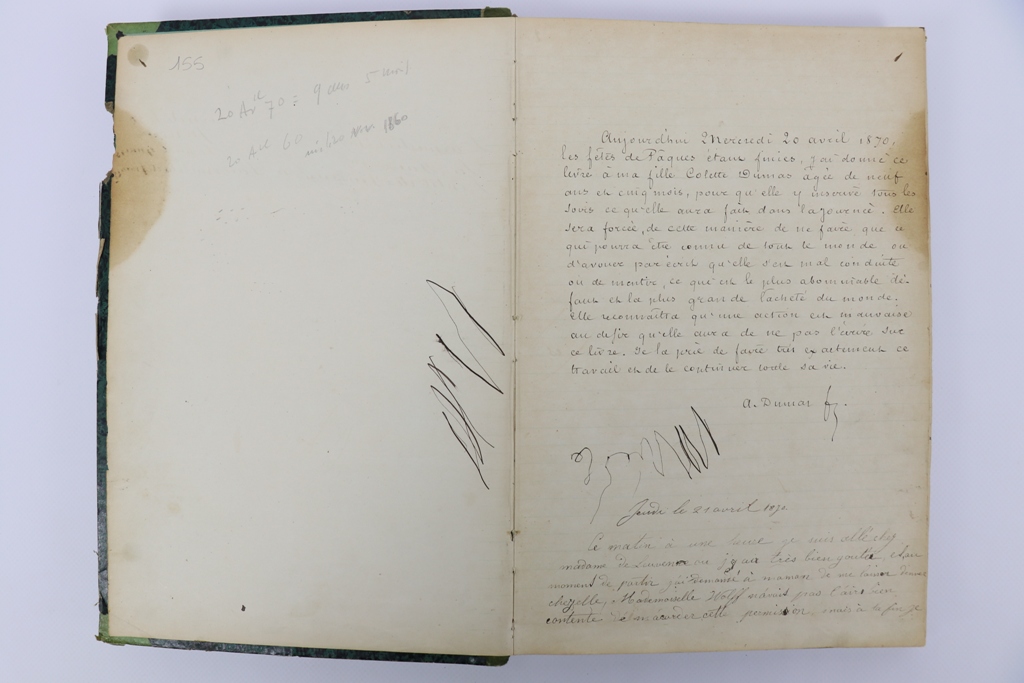 155
20 Avril 70 = 9 ans 5 mois
20 Avl 60 1860
Aujourd'hui Mercredi 20 avril 1870,
les fêtes de Pâques étant finies, j'ai donné ce
livre à ma fille Colette Dumas âgée de neuf
ans et cinq mois, pour qu'elle y inscrive tous les
soirs ce qu'elle aura fait dans la journée. Elle
sera forcée, de cette manière de ne faire que ce
qui pourra être connu de tout le monde ou
d'avouer par écrit qu'elle s'est mal conduite
ou de mentir, ce qui est le plus abominable dé-
faut et la plus grande lâcheté du monde.
Elle reconnaîtra qu'une action est mauvaise
au désir qu'elle aura de ne pas l'écrire sur
ce livre. Je la prie de faire très exactement ce
travail et de le continuer toute sa vie.
A. Dumas f.
Jeudi le 21 avril 1870.
Ce matin à une je suis allé chez
madame de ou j'y ai très bien goutée, et au
moment de partir j'ai demandé à maman de me laisser diner
chez elle, Mademoiselle Wolff n'avait pas l'air bien
contente de m'accorder cette permission mais à la fin je